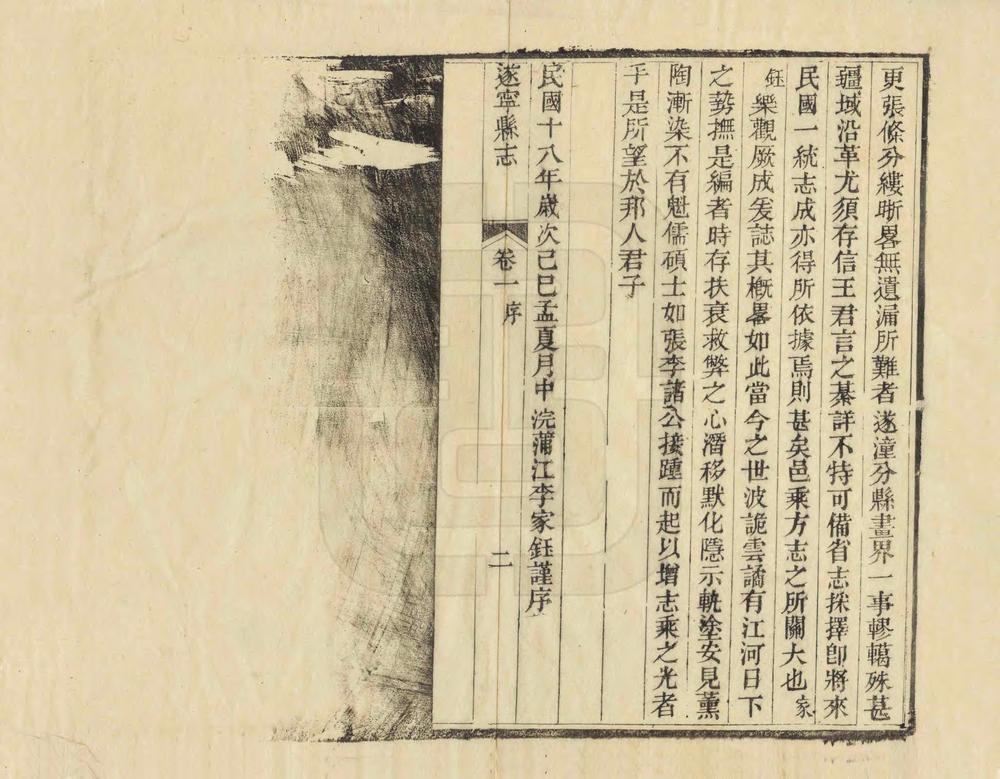 更張條分縷晰畧無遺漏所難者遂潼分縣畫界一事轇轕殊甚
疆域沿革尤須存信王君言之綦詳不特可備省志採擇卽將來
民國一統志成亦得所依據焉則甚矣邑乘方志之所關大也家
鈺樂觀厥成爰誌其槪畧如此當今之世波詭雲譎有江河日下
之勢撫是編者時存扶衰救弊之心潛移默化隱示軌塗安見薰
陶漸染不有魁儒碩士如張李諸公接踵而起以增志乘之光者
乎是所望於邦人君子
民國十八年歲次己巳孟夏月中浣蒲江李家鈺謹序
遂寧縣志 卷一 序 二